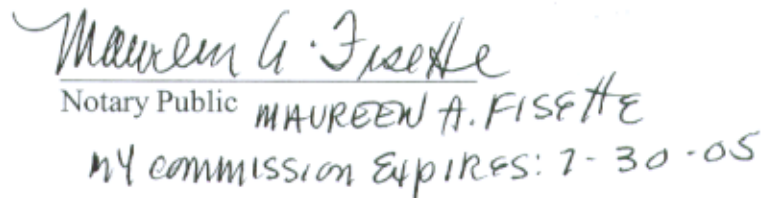 Maureen A. Fisette
Notary Public MAUREEN A. FISETTE
MY COMMISSION EXPIRES: 7-30-05